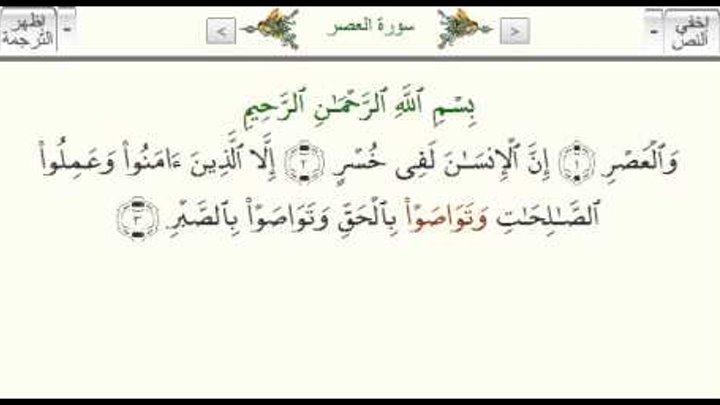 اخفي النص - < سورة العصر > - اظهر الترجمة
بِسْمِ ٱللَّهِ ٱلرَّحْمَـٰنِ ٱلرَّحِيمِ
وَٱلْعَصْرِ ١ إِنَّ ٱلْإِنسَـٰنَ لَفِى خُسْرٍ ٢ إِلَّا ٱلَّذِينَ ءَامَنُوا۟ وَعَمِلُوا۟
ٱلصَّـٰلِحَـٰتِ وَتَوَاصَوْا۟ بِٱلْحَقِّ وَتَوَاصَوْا۟ بِٱلصَّبْرِ ٣